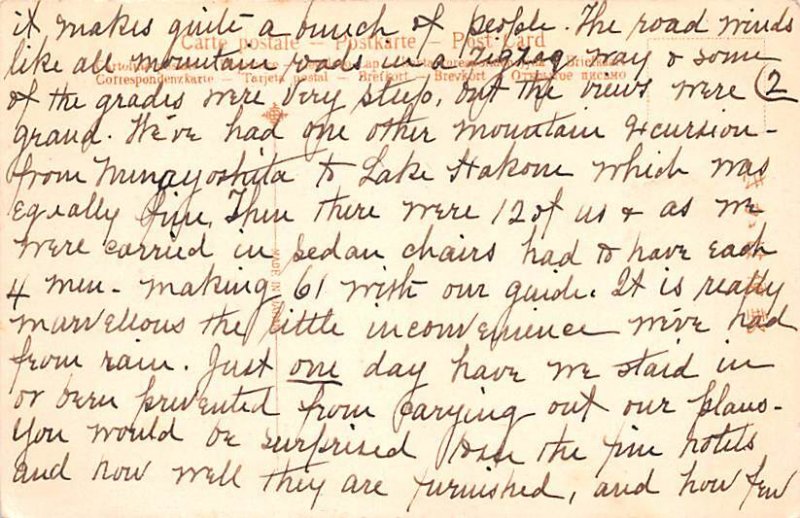 it makes quite a bunch of people. The road winds
Carte postale – Postkarte – Post Card
like all mountain roads in a zigzag way & some
Correspondenzkarte – Tarjeta postal – Brefkort – Brevkort – Открытое письмо
of the grades were very steep, but the views were
2
grand. We've had one other mountain excursion –
from Minayoshita to Lake Hakone which was
equally fine. Then there were 12 of us & as we
were carried in sedan chairs had to have each
4 men – making 61 with our guide. It is really
MADE IN
marvellous the little inconvenience we've had
from rain. Just one day have we staid in
or been prevented from carying out our plans –
You would be surprised the fine hotels
and how well they are furnished, and how few